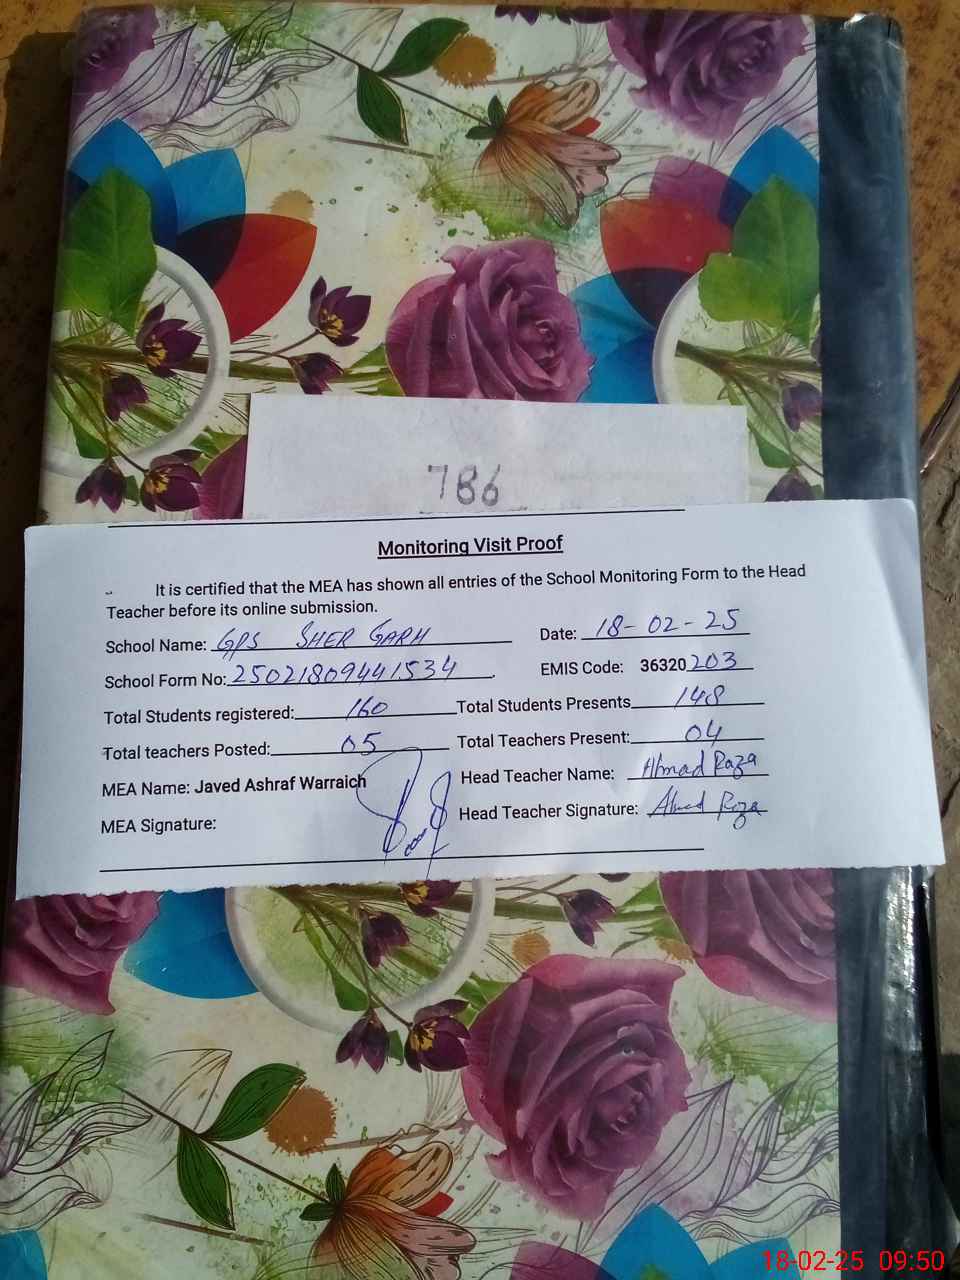 786
Monitoring Visit Proof
It is certified that the MEA has shown all entries of the School Monitoring Form to the Head
Teacher before its online submission.
School Name: GPS SHER GARH Date: 18-02-25
School Form No: 25021809441534 EMIS Code: 36320203
Total Students registered: 160 Total Students Presents 148
Total teachers Posted: 05 Total Teachers Present: 04
MEA Name: Javed Ashraf Warraich Head Teacher Name: Ahmad Raza
MEA Signature: Head Teacher Signature: Ahmad Raza
18-02-25 09:50